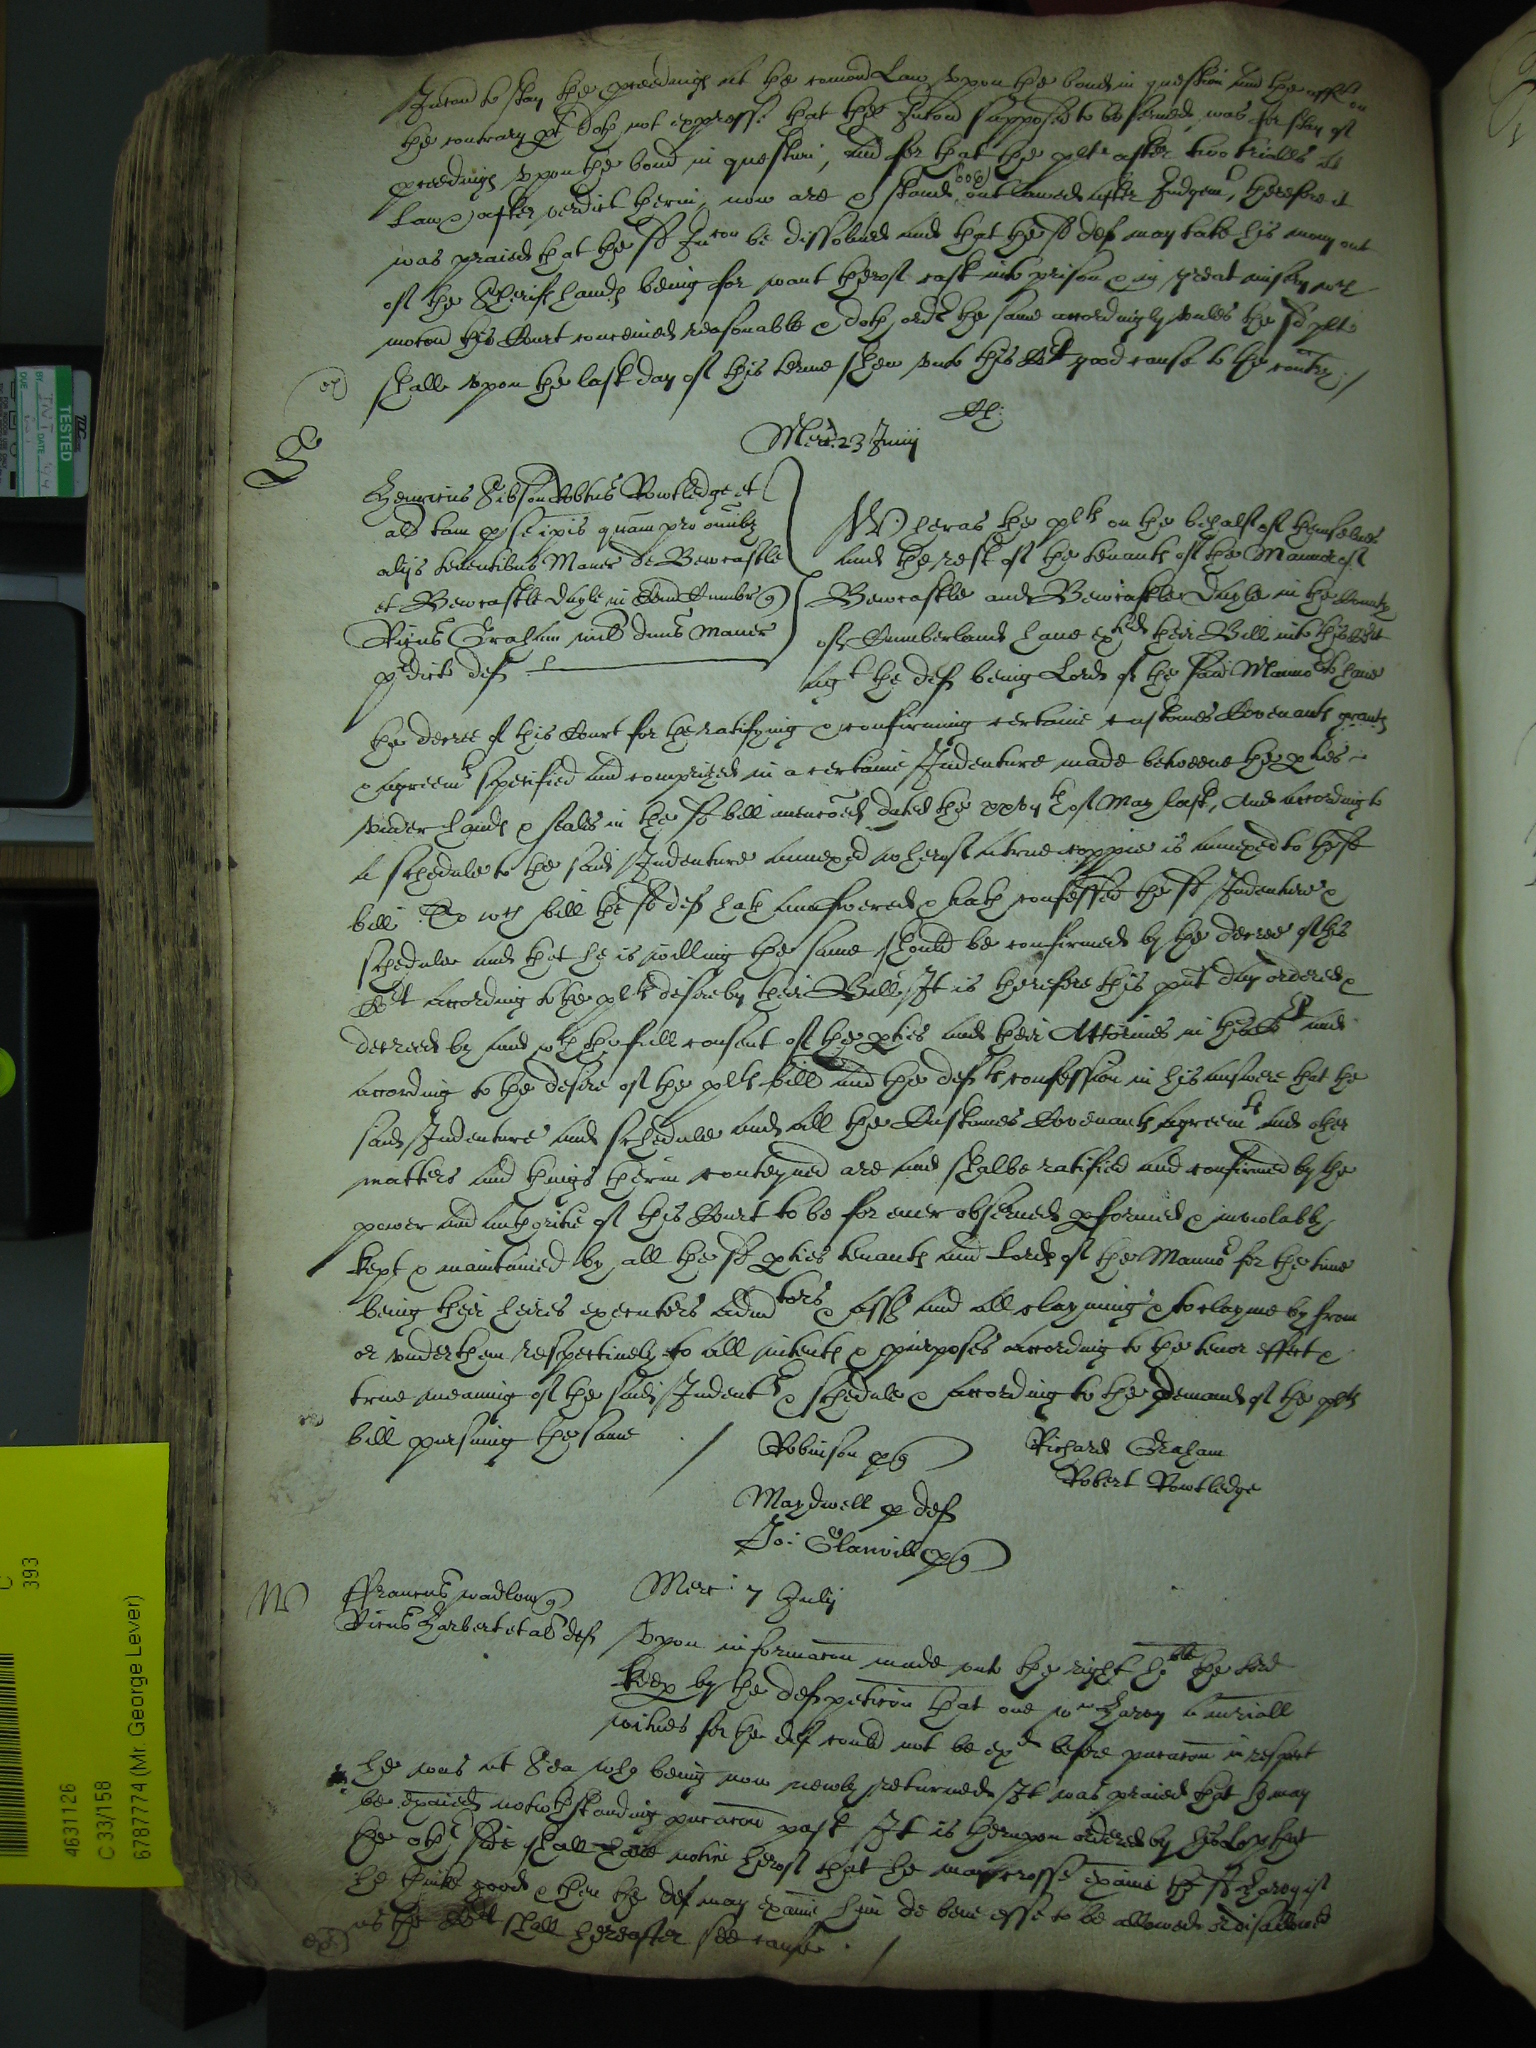 Iniunccon to stay the proceedings at the comon Law upon the bond in question and the afft on
the contrary pt doth not expresse that the Iniuncon supposed to be served was for stay of
proceedings upon the bond in question, and for that the plts after two trialls at
Law & after verdict therin, now are & stand outlawed after Judgemt, therefore it
was praied that the sd Iniuncon be dissolved and that the sd def may take his mony out
of the Sherifs hands being for want therof cast into prison & in great misery wch
motion this Court conceived reasonable & doth order the same accordingly unles the sd plts
shall upon the last day of this terme shew unto this Cort good cause to the contry /
Merc: 23 Junij
S
Henricus Sibson Robtus Rowtledge et
alii tam pro se ipis quam pro omnibz
alijs tenentibus Maner de Bewcastle
et Bewcastle dayle in Com Cumbr q
Ricus Graham miles dnus Maner
predict def
Wheras the plts on the behalf of themselves
and the rest of the tenants of the Mannor of
Bewcastle and Bewcastle Dayle in the County
of Cumberland have exhited their Bill into this Cort
agt the def being Lord of the said Mannor to have
the decree of this Court for the ratifying & confirming certaine customes Covenants grants
& agreemts specified and comprized in a certaine Indenture made betweene the pties
under hands & seales in the sd bill menconed dated the xxvth of May last, And according to
a schedule to the said Indenture annexed wherof a true coppie is annexed to the sd
bill To wch bill the sd def hath answered & hath confessed the sd Indenture &
schedule and that he is willing the same should be confirmed by the decree of this
Cort according to the plts desire by their Bill, It is therefore this pnt day ordered &
decreed by and wth the full consent of the pties and their Attornies in this Cort and
according to the desire of the plts bill and the defts confession in his answere that the
said Indenture and schedule and all the Customes Covenants agreemts and other
matters and things therin conteyned are and shalbe ratified and confirmed by the
power and authoritie of this Court to be for ever observed pformed & inviolably
kept & maintained by all the sd pties tenants and Lords of the Mannor for the time
being their heires executors admtors & assss and all clayming & to clayme by from
or under them respectively to all intents & purposes according to the tenor effect &
true meaning of the said Indentre & schedule & according to the demand of the plts
bill pursuing the same /
Robinson pq
Richard Graham
Robert Rowtledge
Maydwell p def
Jo: Glanvile pq
W
Merc: 7 Julij
ffrancus Wadlow q
Ricus Harbert et al def
Upon informacon made unto the right hoble the Lord
Keep by the defs peticon that one Wm Harvy a materiall
witnes for the def could not be exd before publicacon in respect
he was at Sea who being now newly returned It was praied that he may
be examied notwthstanding publicacon past It is therupon ordered by his Lop that
the other side shall have notice therof that he may crosse examie the sd Harvy if
he thinke good & then the def may examie him de bene esse to be allowed or disallowed
as the Cort shall hereafter see cause /
TESTED
BY INT DATE
DUE
C
393
4631126
C 33/158
6787774 (Mr. George Lever)